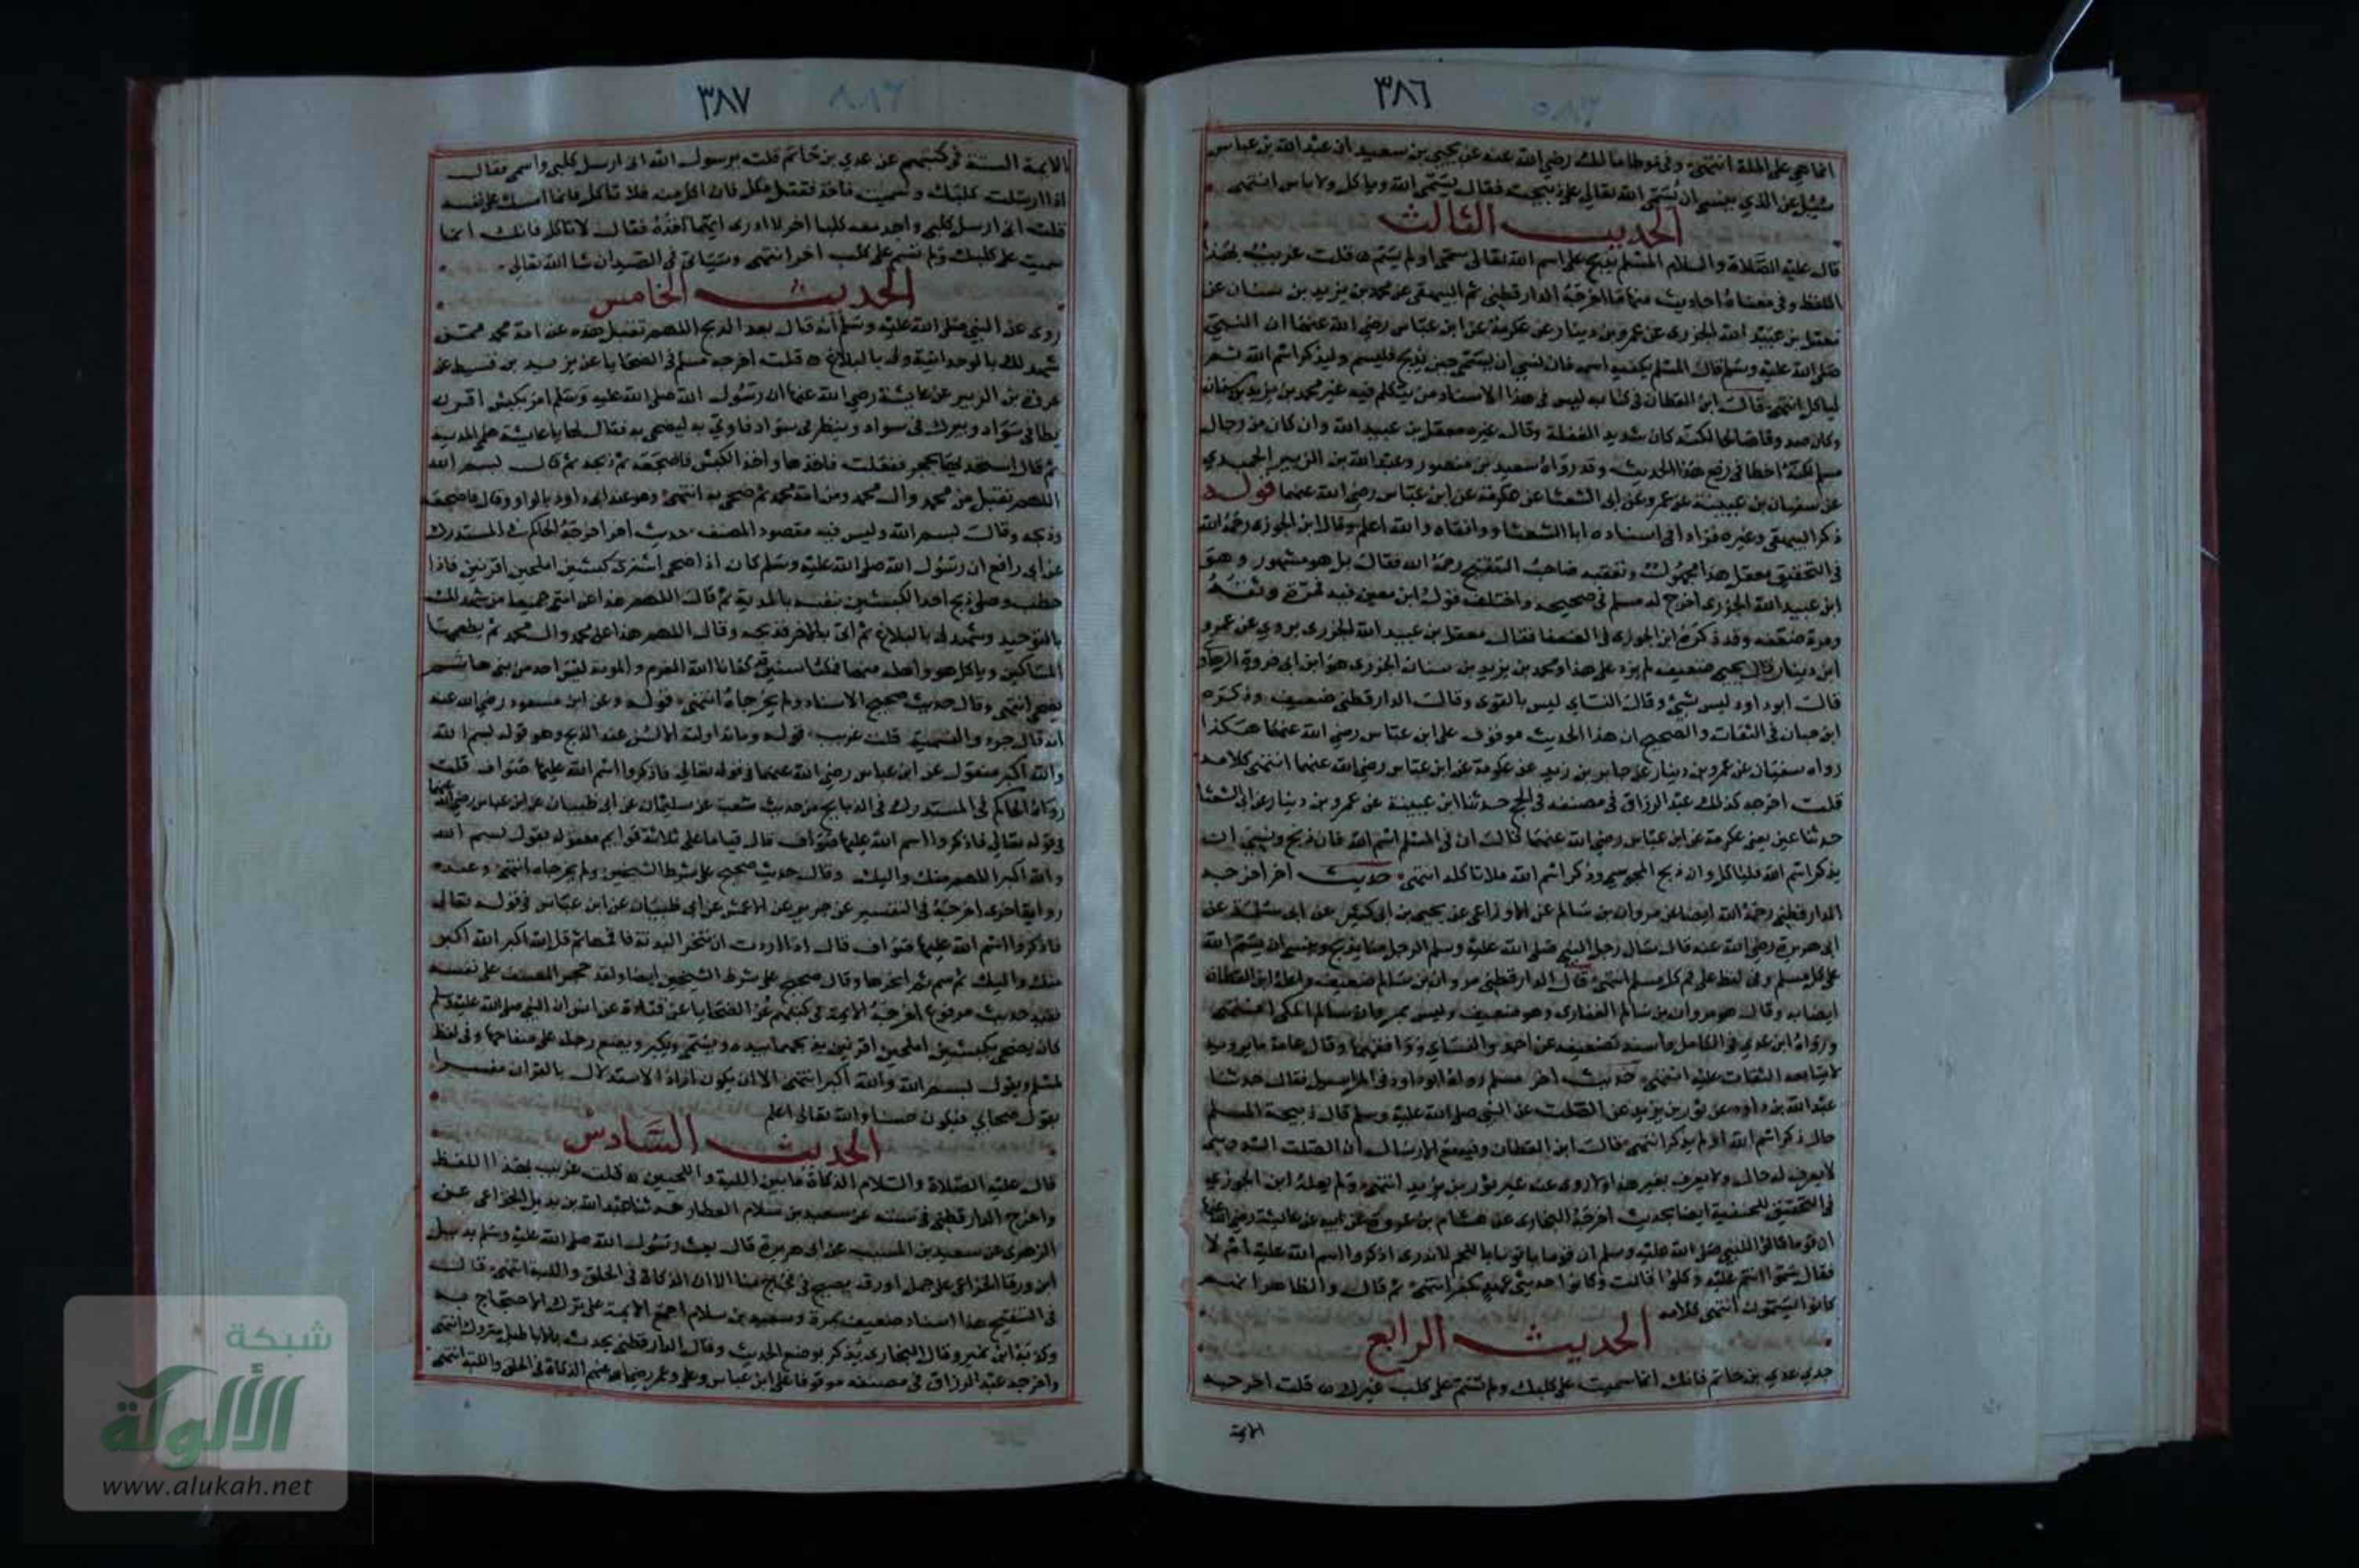 ٣٨٦
انما هي على الملة انتهى وفي موطا مالك رضي الله عنه عن يحيى بن سعيد ان عبد الله بن عباس
سئل عن الذي ينسى ان يسمي الله تعالى على ذبيحته فقال يسمي الله وياكل ولا باس انتهى
الحديث الثالث
قال عليه الصلاة والسلام المسلم يذبح على اسم الله تعالى سمى او لم يسم ه قلت غريب بهذا
اللفظ وفي معناه احاديث منها ما اخرجه الدارقطني ثم البيهقي عن محمد بن يزيد بن سنان عن
معقل بن عبيد الله الجزري عن عمرو بن دينار عن عكرمة عن ابن عباس رضي الله عنهما ان النبي
صلى الله عليه وسلم قال المسلم يكفيه اسمه فان نسي ان يسمي حين يذبح فليسم وليذكر اسم الله ثم
لياكل انتهى قال ابن القطان في كتابه ليس في هذا الاسناد من يتكلم فيه غير محمد بن يزيد بن سنان
وكان صدوقا صالحا لكنه كان شديد الغفلة وقال غيره معقل بن عبيد الله وان كان من رجال
مسلم لكنه اخطا في رفع هذا الحديث وقد رواه سعيد بن منصور وعبد الله بن الزبير الحميدي
عن سفيان بن عيينة عن عمرو عن ابي الشعثا عن عكرمة عن ابن عباس رضي الله عنهما قوله
ذكر البيهقي وغيره فزاد افي اسناده ابا الشعثا ووافقاه والله اعلم وقال ابن الجوزي رحمه الله
في التحقيق معقل هذا مجهول وتعقبه صاحب التنقيح رحمه الله فقال بل هو مشهور وهو
ابن عبيد الله الجزري اخرج له مسلم في صحيحه واختلف قول ابن معين فيه فمرة وثقه
ومرة ضعفه وقد ذكره ابن الجوزي في الضعفا فقال معقل بن عبيد الله الجزري يروي عن عمرو
ابن دينار قال يحيى ضعيف لم يزد على هذا ومحمد بن يزيد بن سنان الجزري هو ابن ابي فروة الرهاوي
قال ابو داود ليس بشئ وقال النساي ليس بالقوي وقال الدارقطني ضعيف وذكره
ابن حبان في الثقات والصحيح ان هذا الحديث موقوف على ابن عباس رضي الله عنهما هكذا
رواه سفيان عن عمرو بن دينار عن جابر بن زيد عن عكرمة عن ابن عباس رضي الله عنهما انتهى كلامه
قلت اخرجه كذلك عبد الرزاق في مصنفه في الحج حدثنا ابن عيينة عن عمرو بن دينار عن ابي الشعثا
حدثنا عين يعني عكرمة عن ابن عباس رضي الله عنهما قال ان في المسلم اسم الله فان ذبح ونسي ان
يذكر اسم الله فلياكل وان ذبح المجوسي وذكر اسم الله فلا تاكله انتهى حديث اخر اخرجه
الدارقطني رحمه الله ايضا عن مروان بن سالم عن الاوزاعي عن يحيى بن ابي كثير عن ابي سلمة عن
ابي هريرة رضي الله عنه قال سال رجل النبي صلى الله عليه وسلم الرجل منا يذبح وينسى ان يسم الله
على كل مسلم وفي لفظ على فم كل مسلم انتهى قال الدارقطني مروان بن سالم ضعيف واعله ابن القطان
ايضا به وقال هو مروان بن سالم الغفاري وهو ضعيف وليس بمروان بن سالم المكي انتهى
ورواه ابن عدي في الكامل واسند تضعيفه عن احمد والنساي ووافقهما وقال عامة ما يرويه
لا يتابعه الثقات عليه انتهى حديث اخر مرسل رواه ابو داود في المراسيل فقال حدثنا
عبد الله بن داود عن ثور بن يزيد عن الصلت عن النبي صلى الله عليه وسلم قال ذبيحة المسلم
حلال ذكر اسم الله او لم يذكر انتهى قال ابن القطان وفيه مع الارسال ان الصلت السدوسي
لا يعرف له حال ولا يعرف بغير هذا ولا روى عنه غير ثور بن يزيد انتهى ولم يعله ابن الجوزي
في التحقيق للحنفية ايضا بحديث اخرجه البخاري عن هشام بن عروة عن ابيه عن عائشة رضي الله عنها
ان قوما قالوا للنبي صلى الله عليه وسلم ان قوما ياتوننا باللحم لا ندري اذكروا اسم الله عليه ام لا
فقال سموا انتم عليه وكلوا قالت وكانوا حديثي عهد بكفر انتهى ثم قال والظاهر انهم
كانوا يسمون انتهى كلامه
الحديث الرابع
حديث عدي بن حاتم فانك انما سميت على كلبك ولم تسم على كلب غيرك ه قلت اخرجه
الايمة
٣٨٧
الايمة الستة في كتبهم عن عدي بن حاتم قلت يرسول الله اني ارسل كلبي واسمي فقال
اذا ارسلت كلبك وسميت فاخذ فقتل فكل فان اكل منه فلا تاكل فانما امسك على نفسه
قلت اني ارسل كلبي واجد معه كلبا اخر لا ادري ايهما اخذه فقال لا تاكل فانك انما
سميت على كلبك ولم تسم على كلب اخر انتهى وسياتي في الصيد ان شا الله تعالى
الحديث الخامس
روى عن النبي صلى الله عليه وسلم انه قال بعد الذبح اللهم تقبل هذه عن امة محمد ممن
شهد لك بالوحدانية ولي بالبلاغ ه قلت اخرجه مسلم في الضحايا عن يزيد بن قسيط عن
عروة بن الزبير عن عايشة رضي الله عنها ان رسول الله صلى الله عليه وسلم امر بكبش اقرن
يطا في سواد ويبرك في سواد وينظر في سواد فاوتي به ليضحي به فقال لها يا عايشة هلمي المدية
ثم قال اشحذيها بحجر ففعلت فاخذها واخذ الكبش فاضجعه ثم ذبحه ثم قال بسم الله
اللهم تقبل من محمد وال محمد ومن امة محمد ثم ضحى به انتهى وهو عند ابي داود بالواو وقال فاضجعه
وذبحه وقال بسم الله وليس فيه مقصود المصنف حديث اخر اخرجه الحاكم في المستدرك
عن ابي رافع ان رسول الله صلى الله عليه وسلم كان اذا ضحى اشترى كبشين املحين اقرنين فاذا
خطب وصلى ذبح احد الكبشين بنفسه بالمدية ثم قال اللهم هذا عن امتي جميعا من شهد لك
بالتوحيد وشهد لي بالبلاغ ثم اتى بالاخر فذبحه وقال اللهم هذا عن محمد وال محمد ثم يطعمهما
المساكين وياكل هو واهله منهما فمكثنا سنين قد كفانا الله الغرم والمونة ليس احد من بني هاشم
يضحي انتهى وقال حديث صحيح الاسناد ولم يخرجاه انتهى قوله وعن ابن مسعود رضي الله عنه
انه قال جردوا التسمية قلت غريب قوله وما تداولته الالسن عند الذبح وهو قوله بسم الله
والله اكبر منقول عن ابن عباس رضي الله عنهما في قوله تعالى فاذكروا اسم الله عليها صواف قلت
رواه الحاكم في المستدرك في الذبايح من حديث شعبة عن سليمان عن ابي ظبيان عن ابن عباس رضي الله عنهما
في قوله تعالى فاذكروا اسم الله عليها صواف قال قياما على ثلاثة قوايم معقولة يقول بسم الله
والله اكبر اللهم منك واليك وقال حديث صحيح على شرط الشيخين ولم يخرجاه انتهى وعنده
رواية اخرى اخرجه في التفسير عن جرير عن الاعمش عن ابي ظبيان عن ابن عباس في قوله تعالى
فاذكروا اسم الله عليها صواف قال اذا اردت ان تنحر البدنة فاقمها ثم قل الله اكبر الله اكبر
منك واليك ثم سم ثم انحرها وقال صحيح على شرط الشيخين ايضا ولقد حجر المصنف على نفسه
ففيه حديث مرفوع اخرجه الايمة في كتبهم عن الضحايا عن قتادة عن انس ان النبي صلى الله عليه وسلم
كان يضحي بكبشين املحين اقرنين يذبحهما بيده ويسمي ويكبر ويضع رجله على صفاحهما وفي لفظ
لمسلم ويقول بسم الله والله اكبر انتهى الا ان يكون اراد الاستدلال بالقران مفسرا
بقول صحابي فيكون حسنا والله تعالى اعلم
الحديث السادس
قال عليه الصلاة والسلام الذكاة ما بين اللبة واللحيين ه قلت غريب بهذا اللفظ
واخرج الدارقطني في سننه عن سعيد بن سلام العطار حدثنا عبد الله بن بديل الخزاعي عن
الزهري عن سعيد بن المسيب عن ابي هريرة قال بعث رسول الله صلى الله عليه وسلم بديل
ابن ورقا الخزاعي على جمل اورق يصيح في فجاج منا الا ان الذكاة في الحلق واللبة انتهى قال
في التنقيح هذا اسناد ضعيف بمرة وسعيد بن سلام اجمع الايمة على ترك الاحتجاج به
وكذبه ابن نمير وقال البخاري يذكر بوضع الحديث وقال الدارقطني يحدث بالاباطيل متروك انتهى
واخرجه عبد الرزاق في مصنفه موقوفا على ابن عباس وعلى وعمر رضي الله عنهم الذكاة في الحلق واللبة انتهى
شبكة
الألوكة
www.alukah.net